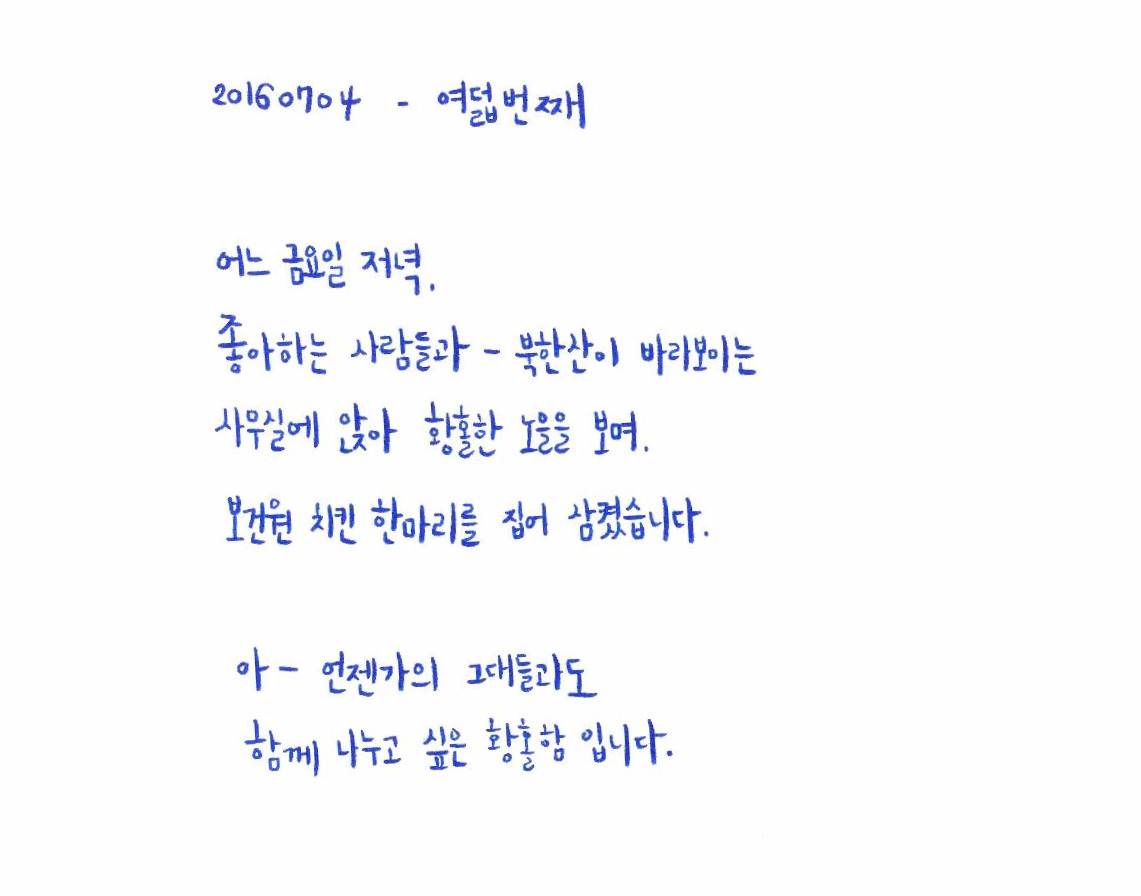 20160704 - 여덟번째
어느 금요일 저녁.
좋아하는 사람들과 - 북한산이 바라보이는
사무실에 앉아 황홀한 노을을 보며.
보건원 치킨 한마리를 집어 삼켰습니다.
아 - 언젠가의 그대들과도
함께 나누고 싶은 황홀함 입니다.